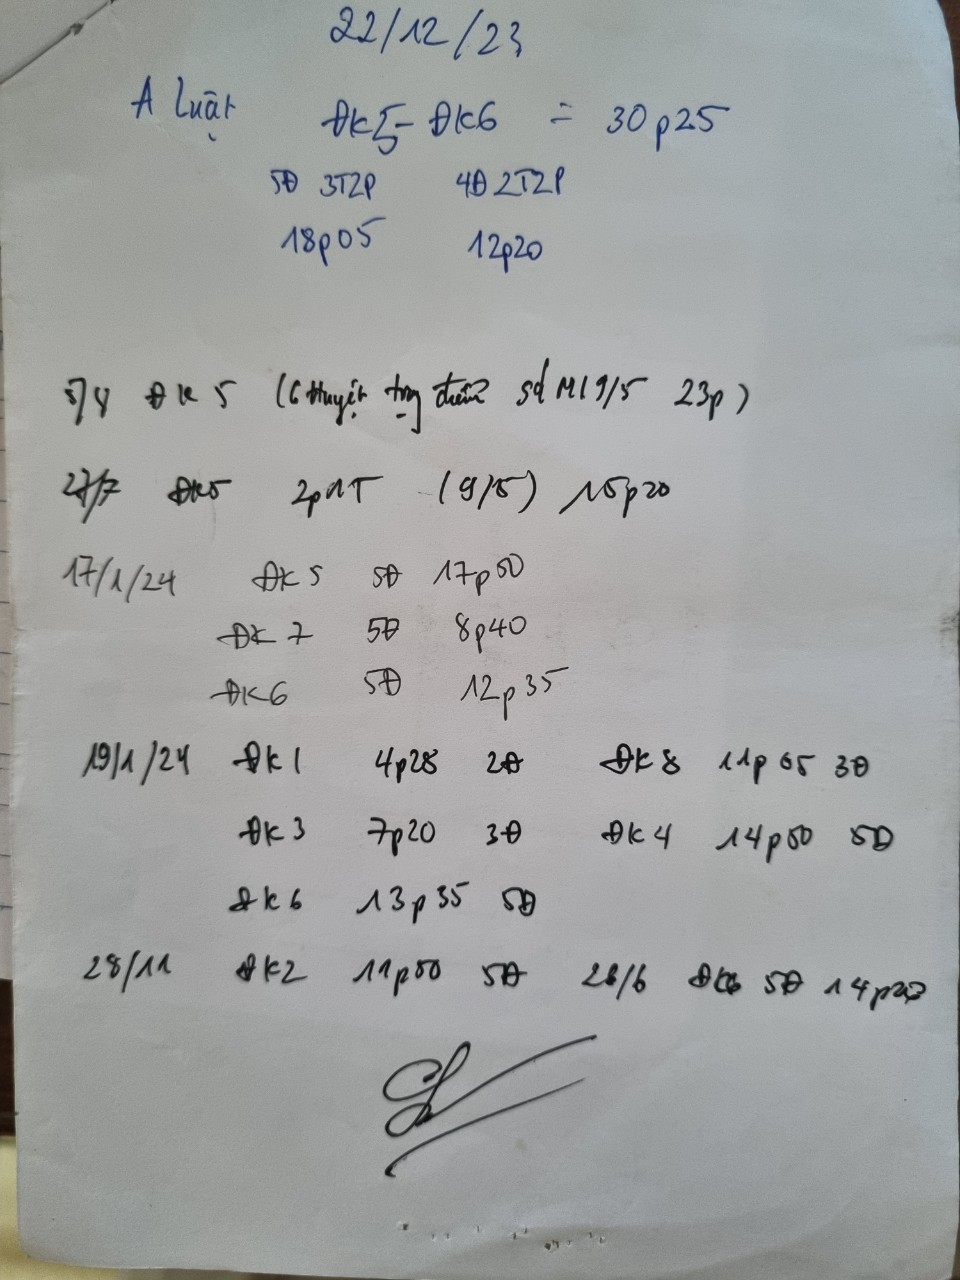 22/12/23
A Luật ĐK5 - ĐK6 = 30p25
5Đ 3T2P 4Đ 2T2P
18p05 12p20
5/8 ĐK 5 (6 Huyệt trọng điểm sd M(9/5 23p)
27/7 ĐK5 2p1T (9/5) 15p20
17/1/24 ĐK 5 5Đ 17p50
ĐK 7 5Đ 8p40
ĐK6 5Đ 12p35
19/1/24 ĐK 1 4p28 2Đ ĐK 8 11p05 3Đ
ĐK 3 7p20 3Đ ĐK 4 14p50 5Đ
ĐK 6 13p35 5Đ
28/11 ĐK2 11p50 5Đ 28/6 5Đ